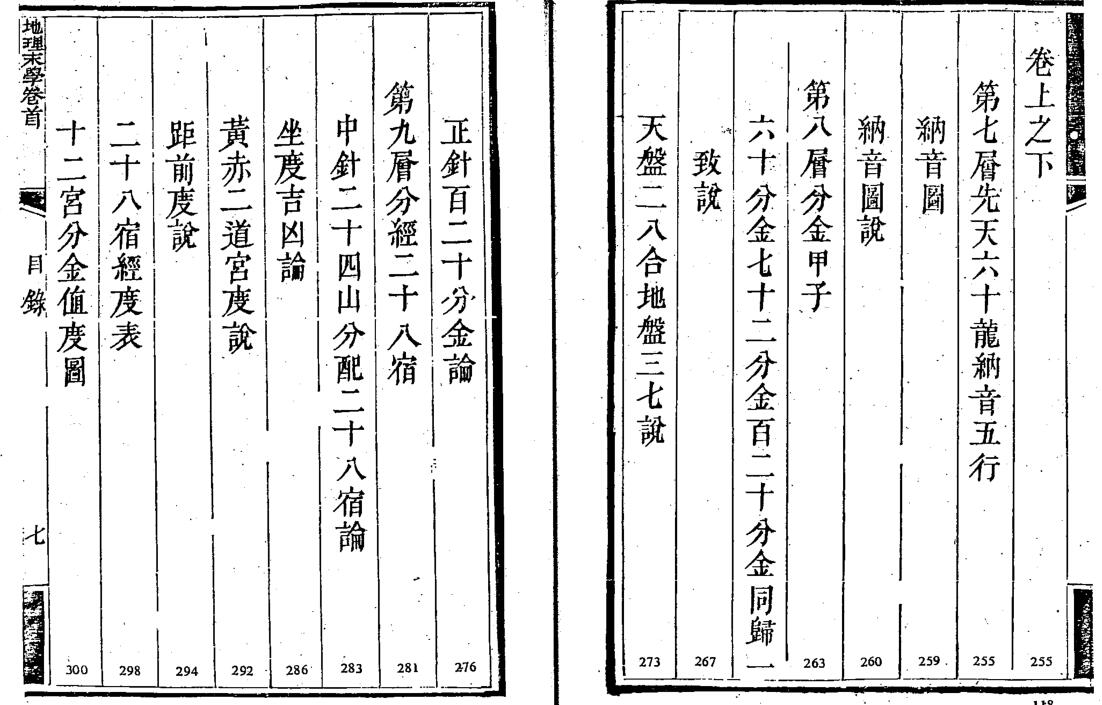 卷上之下 255
第七層先天六十龍納音五行 255
納音圖 259
納音圖說 260
第八層分金甲子 263
六十分金七十二分金百二十分金同歸一
致說 267
天盤二八合地盤三七說 273
118
正針百二十分金論 276
第九層分經二十八宿 281
中針二十四山分配二十八宿論 283
坐度吉凶論 286
黃赤二道宮度說 292
距前度說 294
二十八宿經度表 298
十二宮分金值度圖 300
地理末學卷首
目錄
七